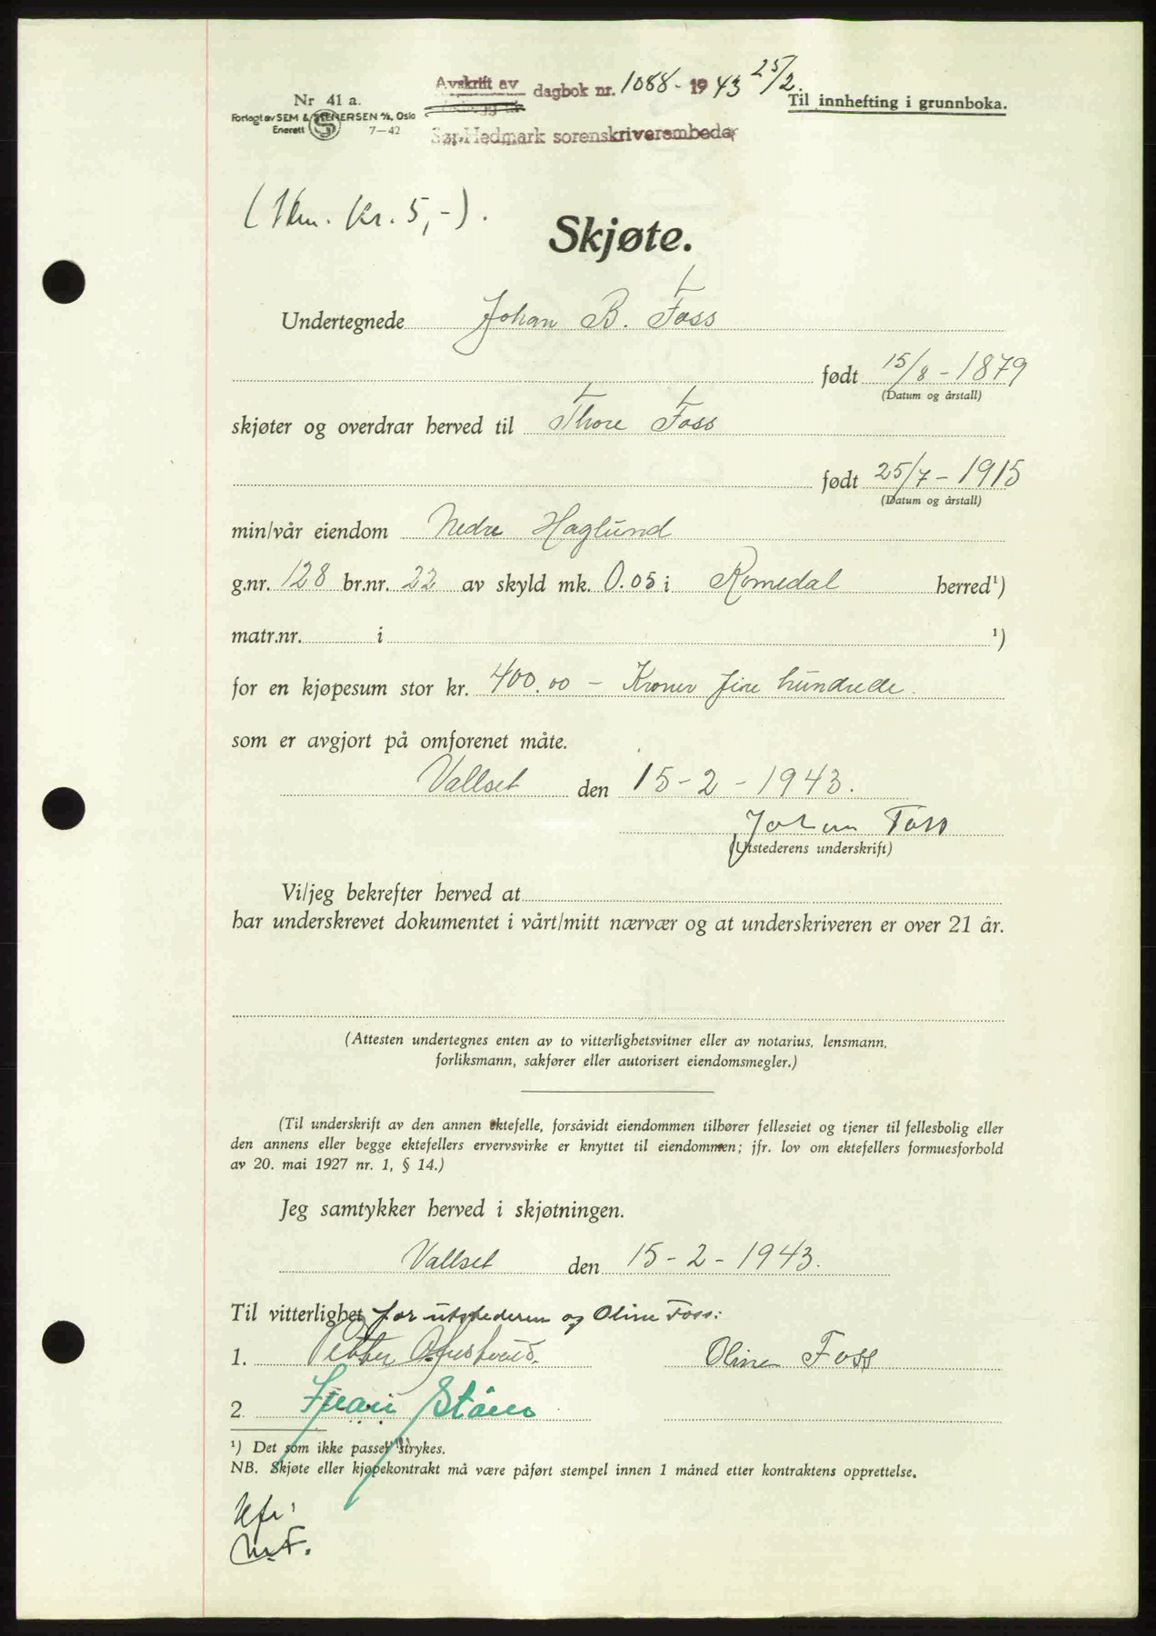 Nr 41 a.
Forlagt av SEM & STENERSEN A/S, Oslo
Enerett S 7—42
Avskrift av dagbok nr. 1088 - 1943 25/2
Til innhefting i grunnboka.
Sør-Hedmark sorenskriverembede
Kr. 5,-).
Skjøte.
Undertegnede Johan B. Foss
født 15/8 - 1879
(Datum og årstall)
skjøter og overdrar herved til Thore Foss
født 25/7 - 1915
(Datum og årstall)
min/vår eiendom Nedre Haglund
g.nr. 128 br.nr. 22 av skyld mk. 0.05 i Romedal herred¹)
matr.nr. i ¹)
for en kjøpesum stor kr. 400.00 - Kroner fire hundrede.
som er avgjort på omforenet måte.
Vallset den 15-2-1943.
Johan Foss
(Utstederens underskrift)
Vi/jeg bekrefter herved at
har underskrevet dokumentet i vårt/mitt nærvær og at underskriveren er over 21 år.
(Attesten undertegnes enten av to vitterlighetsvitner eller av notarius, lensmann,
forliksmann, sakfører eller autorisert eiendomsmegler.)
(Til underskrift av den annen ektefelle, forsåvidt eiendommen tilhører felleseiet og tjener til fellesbolig eller
den annens eller begge ektefellers ervervsvirke er knyttet til eiendommen; jfr. lov om ektefellers formuesforhold
av 20. mai 1927 nr. 1, § 14.)
Jeg samtykker herved i skjøtningen.
Vallset den 15-2-1943.
Til vitterlighet for utstederen og Oline Foss:
1. Petter Oline Foss
2.
¹) Det som ikke passer strykes.
NB. Skjøte eller kjøpekontrakt må være påført stempel innen 1 måned etter kontraktens opprettelse.